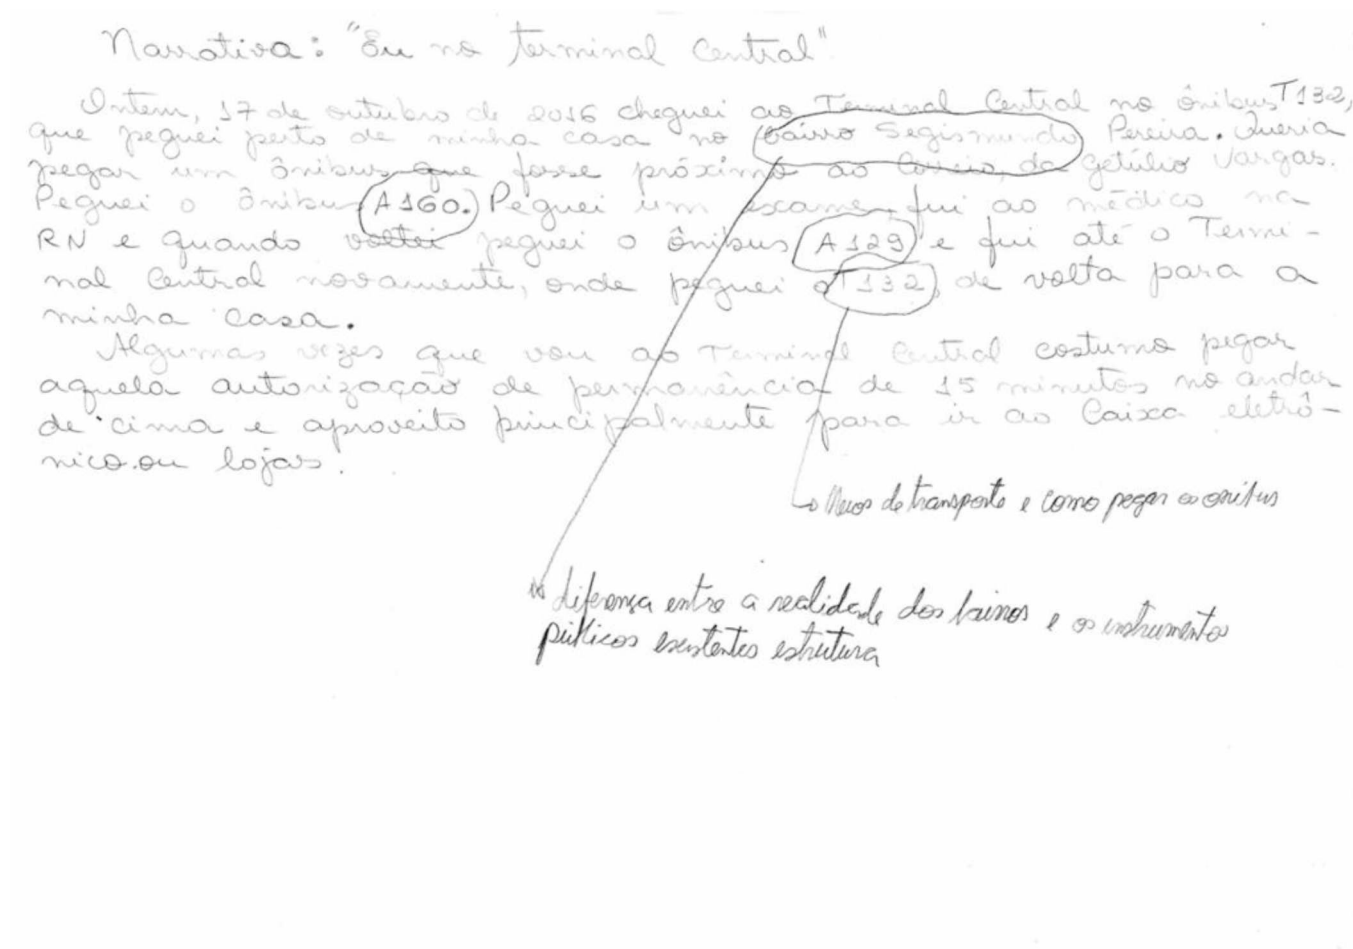 Narrativa: "Eu no terminal Central"
Ontem, 17 de outubro de 2016 cheguei ao Terminal Central no ônibus T132,
que peguei perto de minha casa no bairro Segismundo Pereira. Queria
pegar um ônibus que fosse próximo ao Correio da Getúlio Vargas.
Peguei o ônibus A160. Peguei um exame, fui ao médico na
RN e quando voltei peguei o ônibus A129 e fui até o Termi-
nal Central novamente, onde peguei o T132, de volta para a
minha casa.
Algumas vezes que vou ao Terminal Central costumo pegar
aquela autorização de permanência de 15 minutos no andar
de cima e aproveito principalmente para ir ao Caixa eletrô-
nico ou lojas.
Meios de transporte e como pegar os onibus
diferença entre a realidade dos bairros e os instrumentos
públicos existentes estrutura